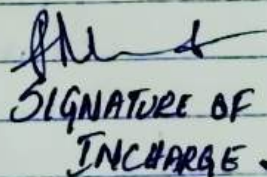 SIGNATURE OF
INCHARGE.